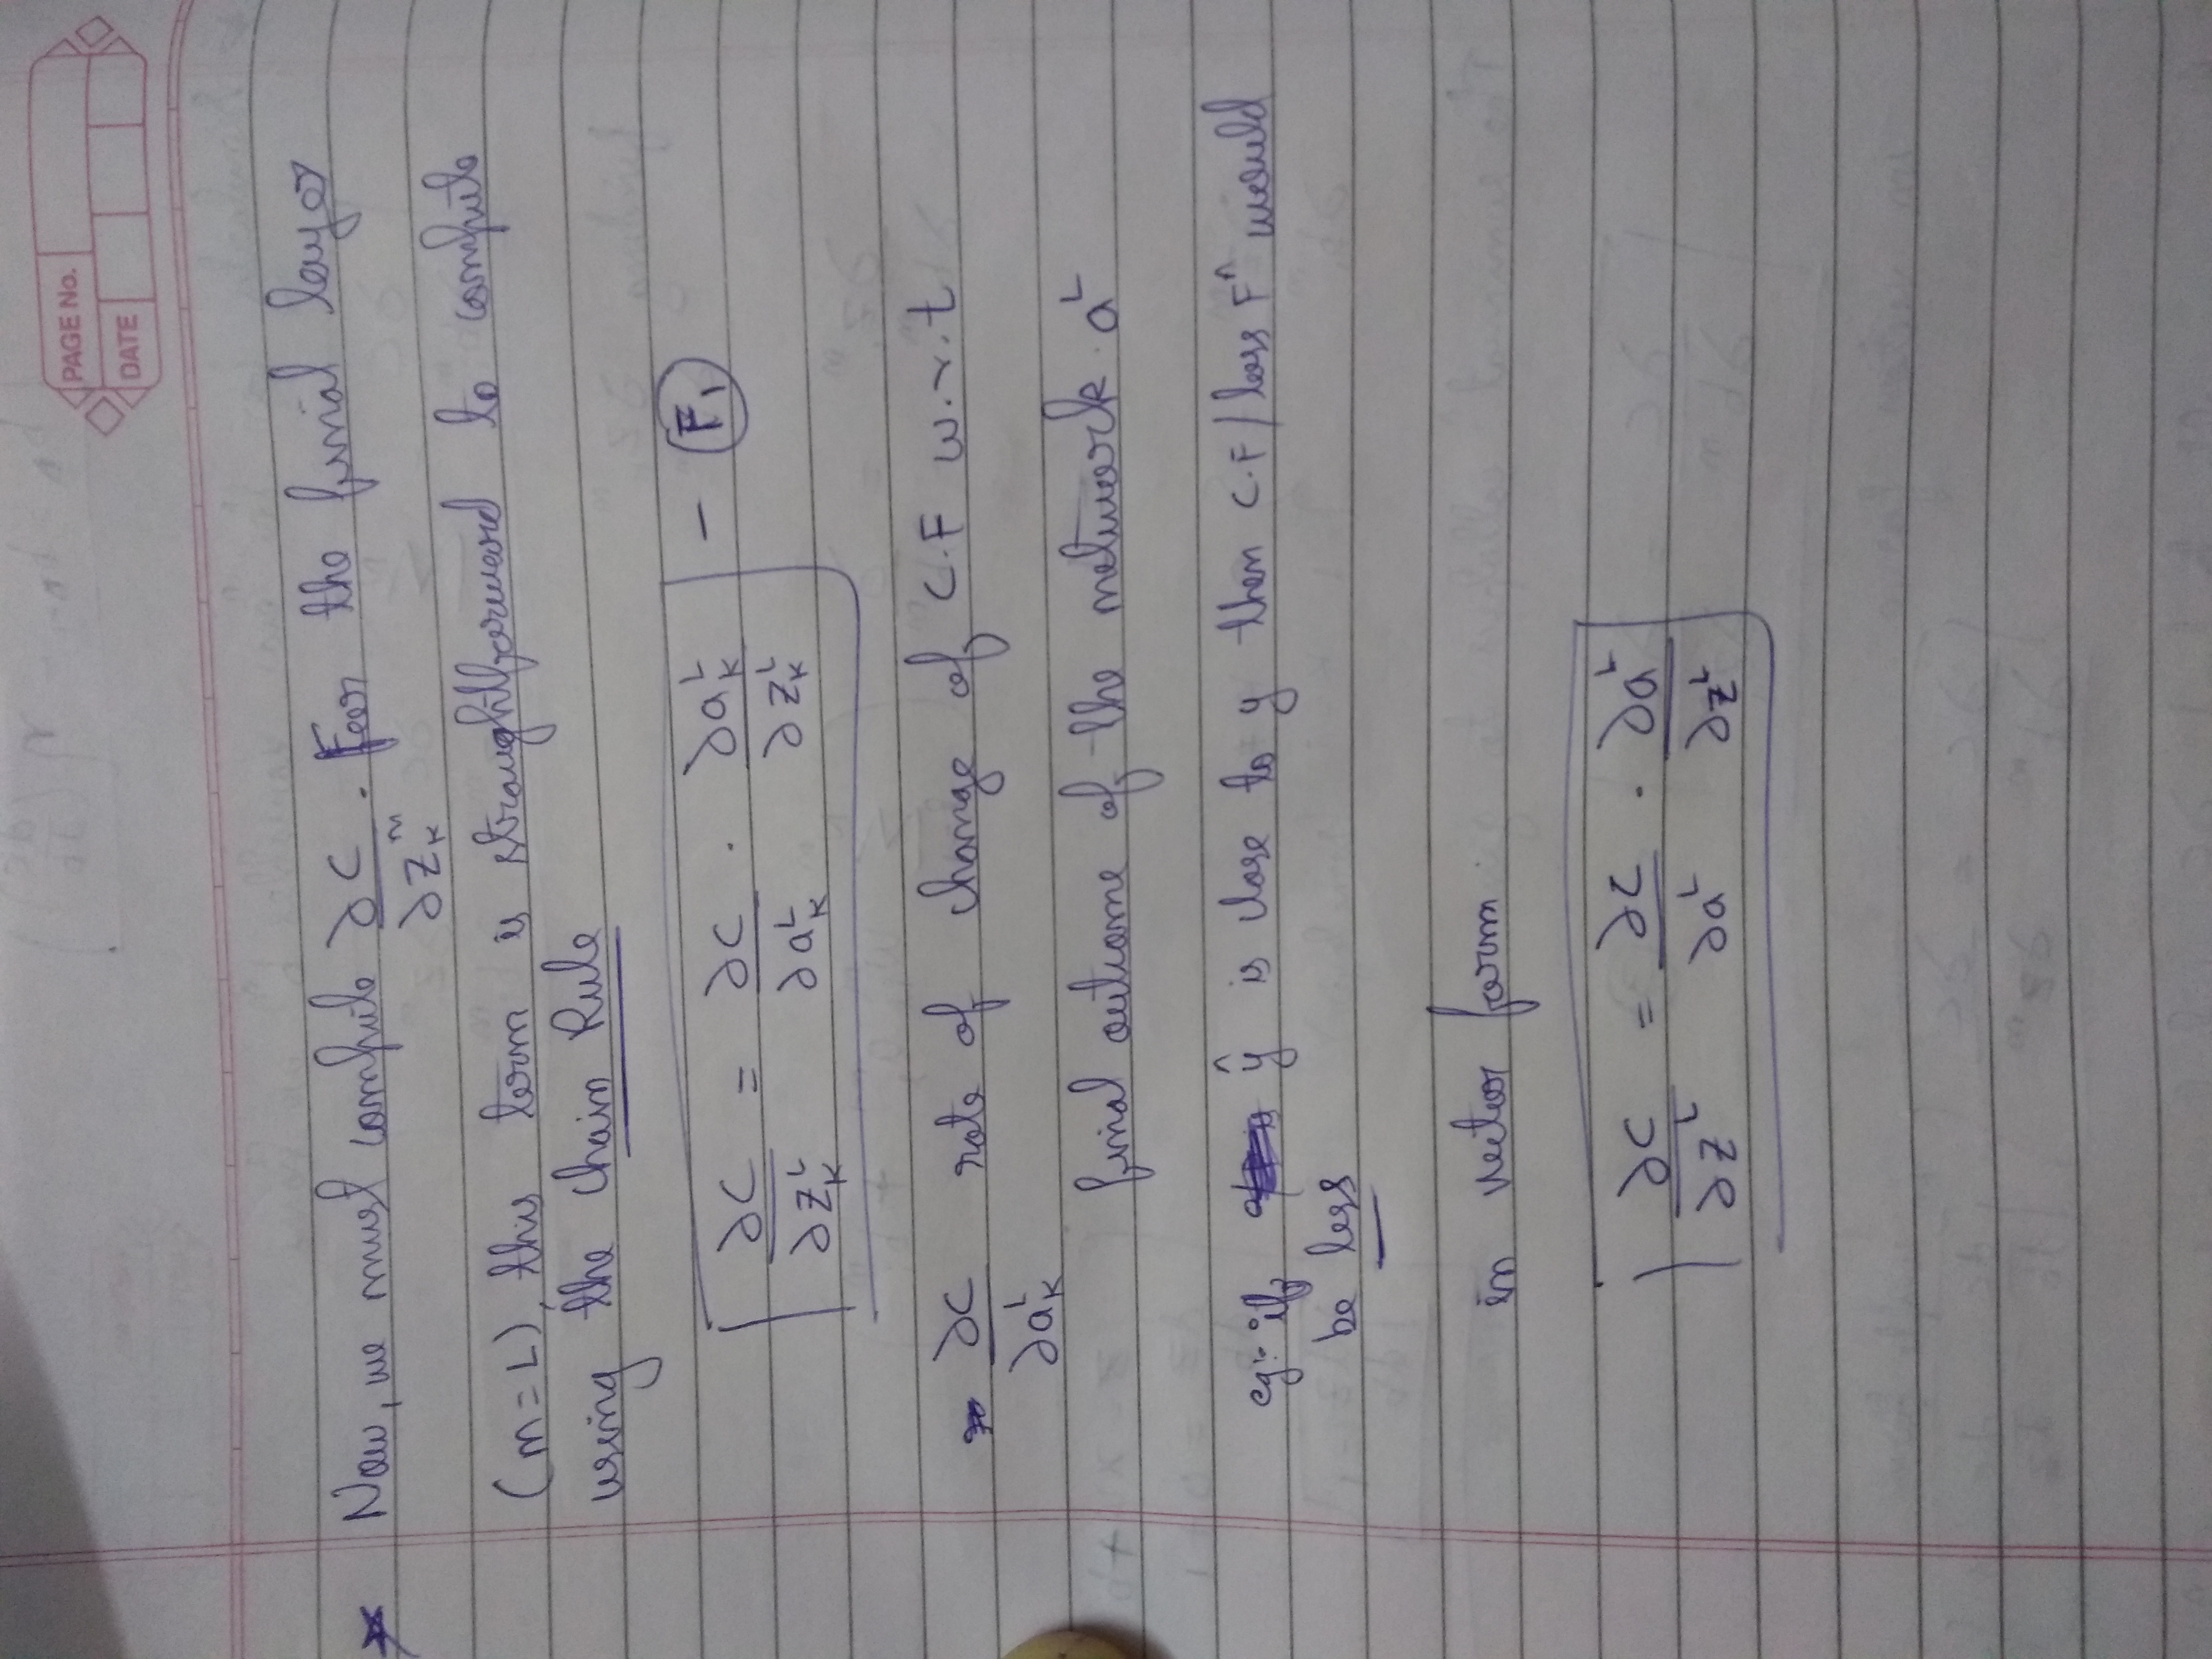 PAGE No.
DATE
Now, we must compute ∂C/∂z_k^m . For the final layer
(m = L), this term is straightforward to compute
using the Chain Rule
∂C/∂z_k^L = ∂C/∂a_k^L · ∂a_k^L/∂z_k^L — F₁
∂C/∂a_k^L rate of change of C.F w.r.t
final outcome of the network a^L
eg:- if ŷ is close to y then C.F/loss Fⁿ would
be less
in vector form
∂C/∂z^L = ∂C/∂a^L · ∂a^L/∂z^L